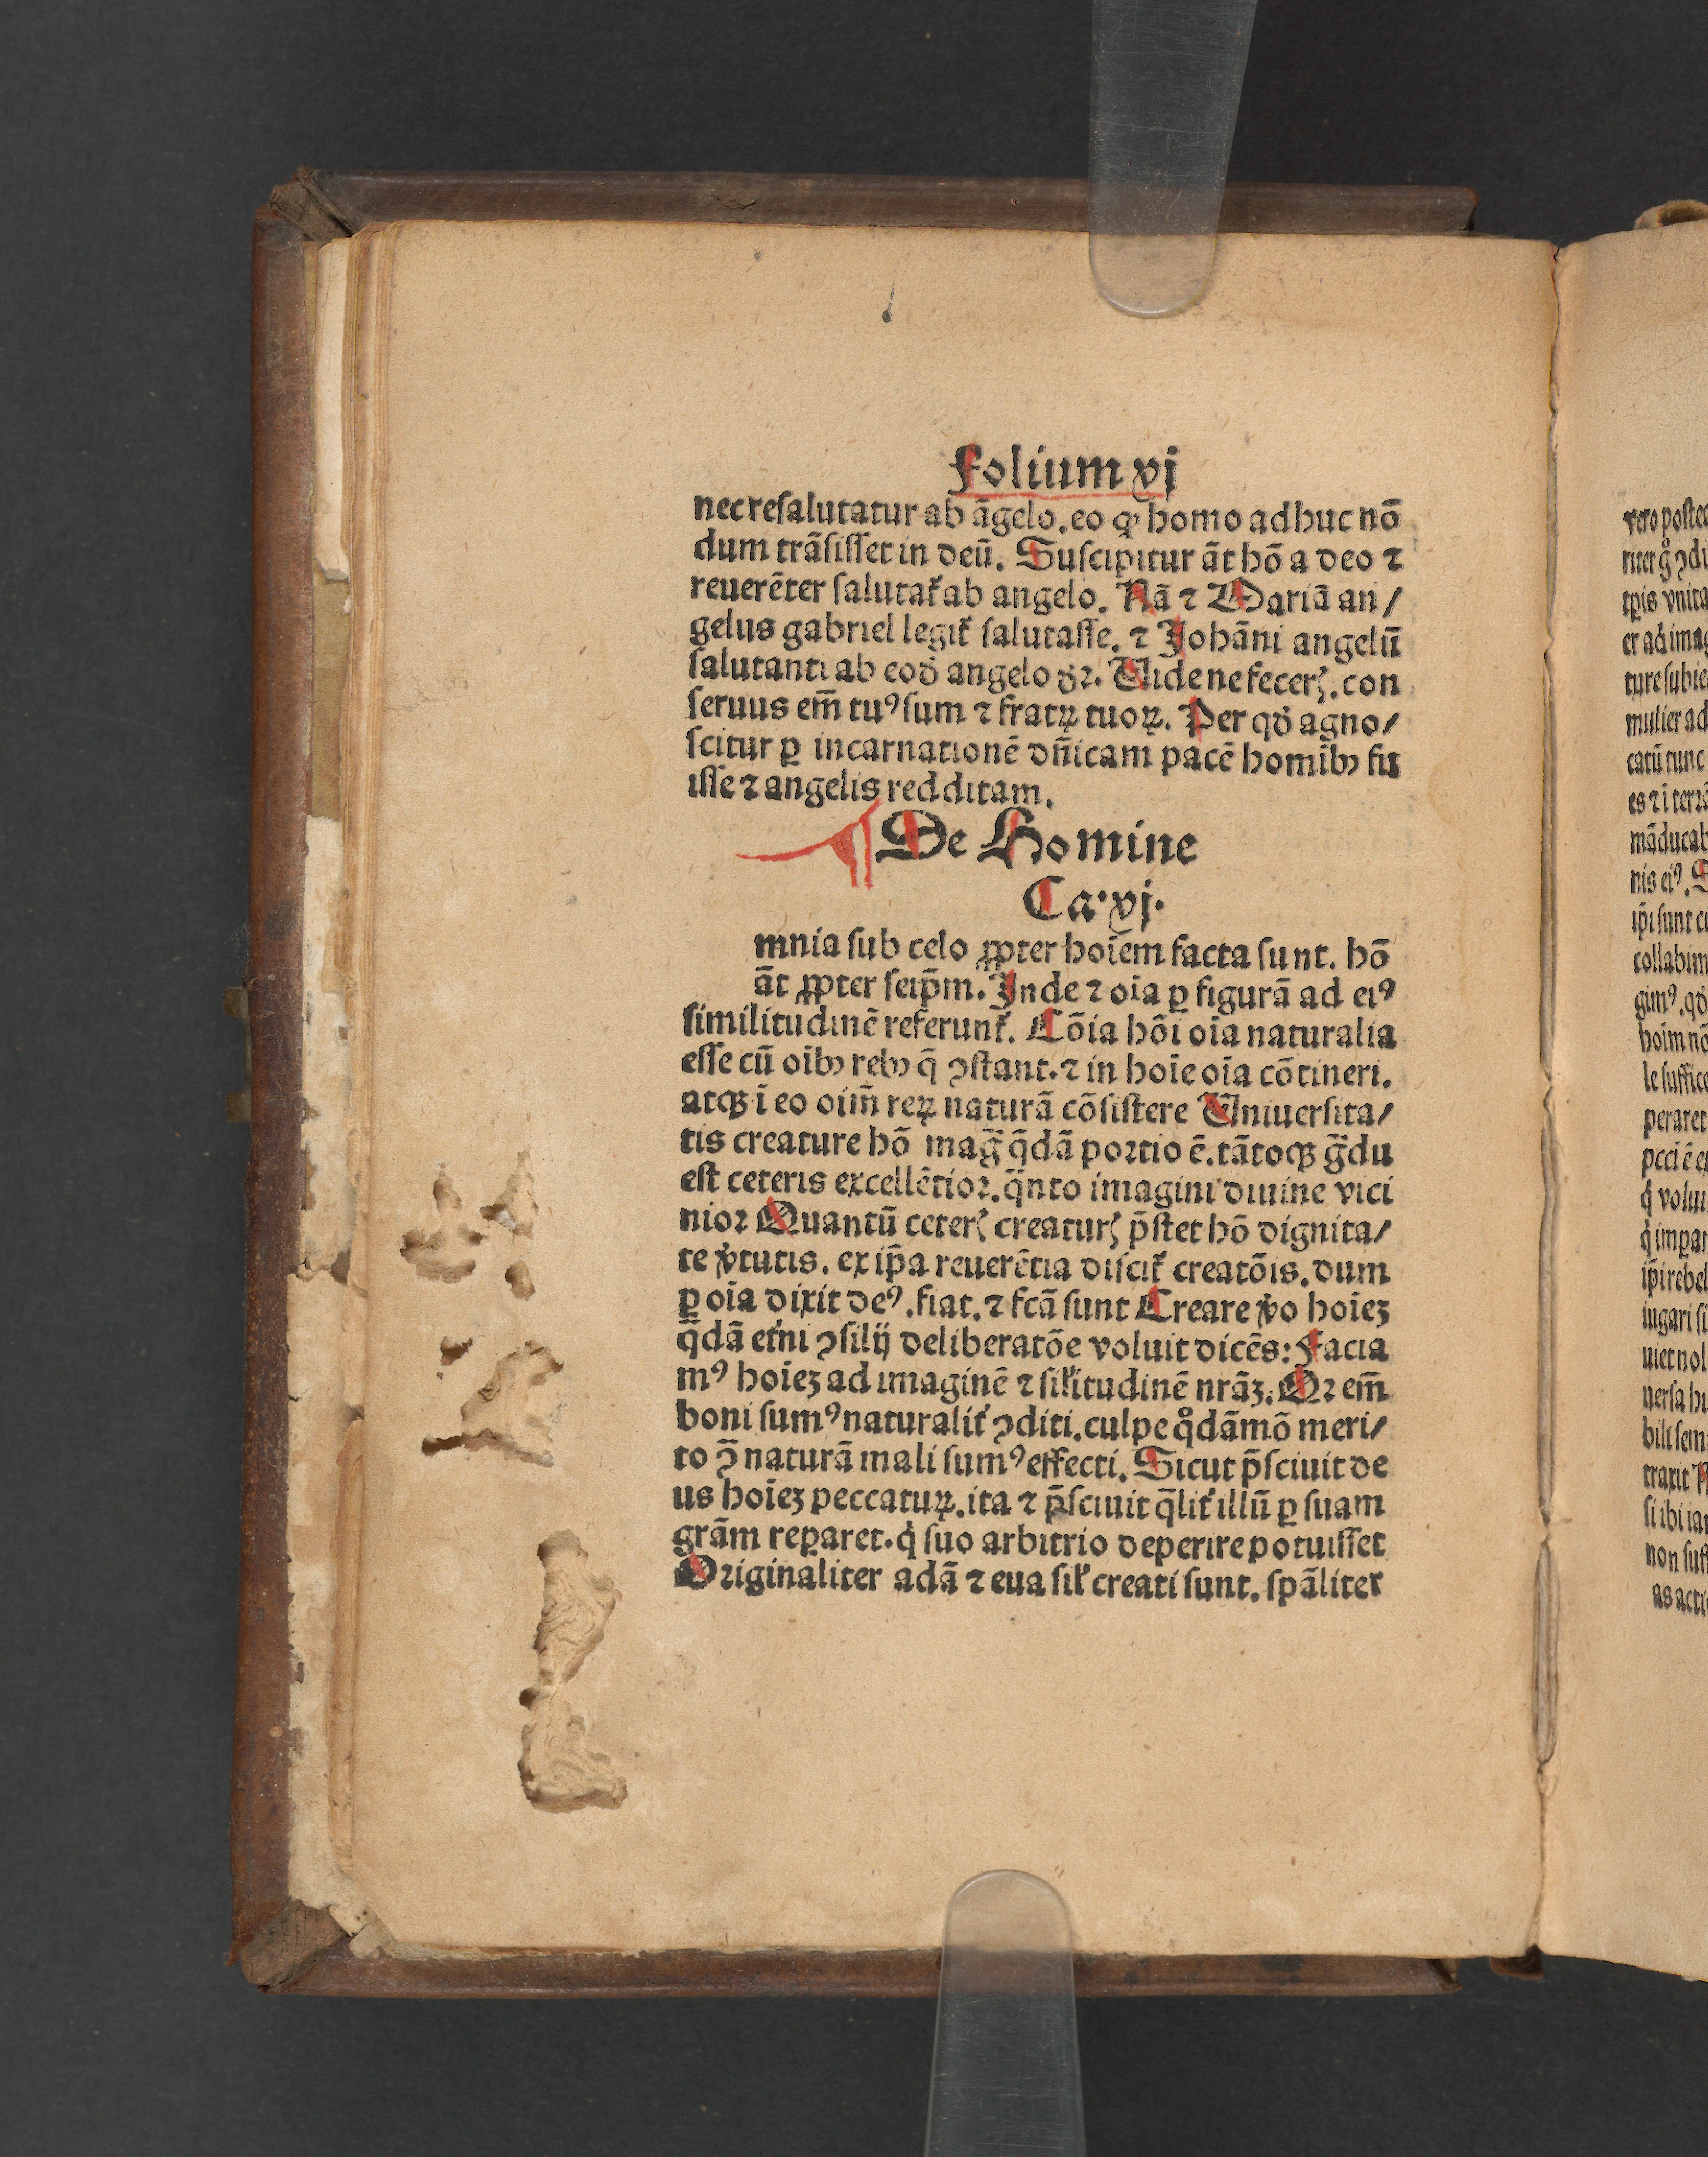 Folium vj
nec resalutatur ab āgelo. eo ꝙ homo adhuc nō
dum trāsisset in deū. Suscipitur āt hō a deo ⁊
reuerēter salutat᷑ ab angelo. Nā ⁊ Mariā an/
gelus gabriel legit᷑ salutasse. ⁊ Johāni angelū
salutanti ab eod̄ angelo dꝛ. Uide ne feceꝭ. con
seruus em̄ tuꝰ sum ⁊ fratꝝ tuoꝝ. Per qd̄ agno/
scitur ꝑ incarnationē dn̄icam pacē homībꝫ fu
isse ⁊ angelis redditam.
¶ De Homine
Ca. vj.
mnia sub celo ꝓpter hoīem facta sunt. hō
āt ꝓpter seip̄m. Inde ⁊ oīa ꝑ figurā ad eiꝰ
similitudinē referunt᷑. Cōia hōi oīa naturalia
esse cū oībꝫ rebꝫ q̄ ꝯstant. ⁊ in hoīe oīa cōtineri.
atqꝫ ī eo oīm̄ reꝝ naturā cōsistere Uniuersita/
tis creature hō maḡ q̄dā portio ē. tātoqꝫ ḡdu
est ceteris excellētior. q̄nto imagini diuine vici
nior Quantū ceterꝭ creaturꝭ p̄stet hō dignita/
te v̓tutis. ex ip̄a reuerētia discit᷑ creatōis. dum
ꝑ oīa dixit deꝰ. fiat. ⁊ fcā sunt Creare v̓o hoīeꝫ
q̄dā et̓ni ꝯsilij deliberatōe voluit dicēs: Facia
mꝰ hoīeꝫ ad imaginē ⁊ sil̓itudinē nrāꝫ. Qꝛ em̄
boni sumꝰ naturalit̓ ꝯditi. culpe qͦdāmō meri/
to ꝯ̄ naturā mali sumꝰ effecti. Sicut p̄sciuit de
us hoīeꝫ peccatuꝝ. ita ⁊ p̄sciuit q̄lit̓ illū ꝑ suam
grām reꝑaret. q̓ suo arbitrio deperire potuisset
Originaliter adā ⁊ eua sil̓ creati sunt. spāliter